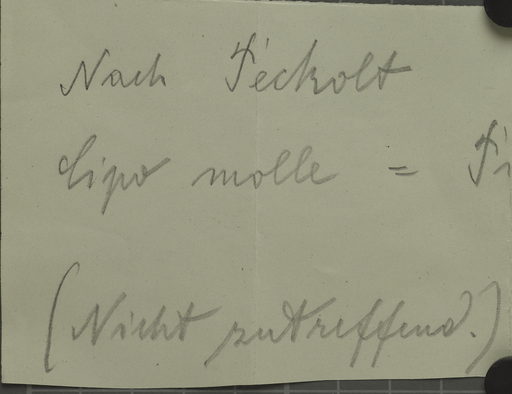 Nach Peckolt
Cipo molle =
(Nicht zutreffend.)